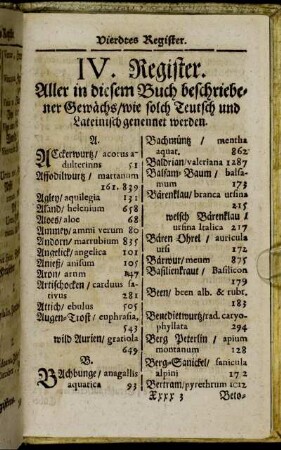 Vierdtes Register.
IV. Register.
Aller in diesem Buch beschriebe-
ner Gewächs/wie solch Teutsch und
Lateinisch genennet werden.
A.
ACkerwurtz/ acorus a-
dulterinus 51
Affodilwurtz/ martanum
161. 839
Agley/ aquilegia 131
Aland/ helenium 658
Aloes/ aloe 68
Ammey/ ammi verum 80
Andorn/ marrubium 835
Angelick/ angelica 101
Aneiß/ anisum 105
Aron/ arum 847
Artischocken / carduus sa-
tivus 281
Attich/ ebulus 505
Augen-Trost/ euphrasia,
543
wild Aurien/ gratiola
649
B.
BAchbunge/ anagallis
aquatica 93
Bachmüntz / mentha
aquat. 862
Baldrian/valeriana 1287
Balsam-Baum / balsa-
mum 173
Bärenklau/ branca ursina
215
welsch Bärenklau /
ursina Italica 217
Bären Ohrel / auricula
ursi 172
Bärwur/ meum 875
Basilienkraut/ Basilicon
179
Been/ been alb. & rubr.
183
Benedicttwurtz/rad. caryo-
phyllata 294
Berg Peterlin / apium
montanum 128
Berg-Sanickel/ sanicula
alpini 172
Bertram/pyrethrum 1012
Xxxx 3 Beto-